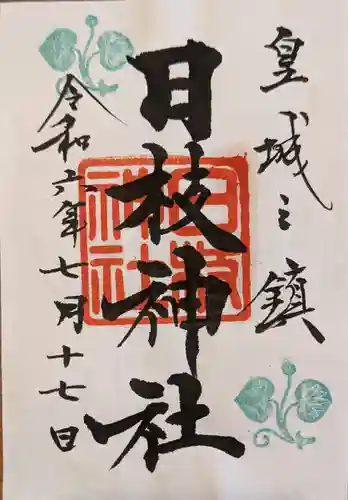 皇城之鎮
日枝神社
令和六年七月十七日
日枝神社